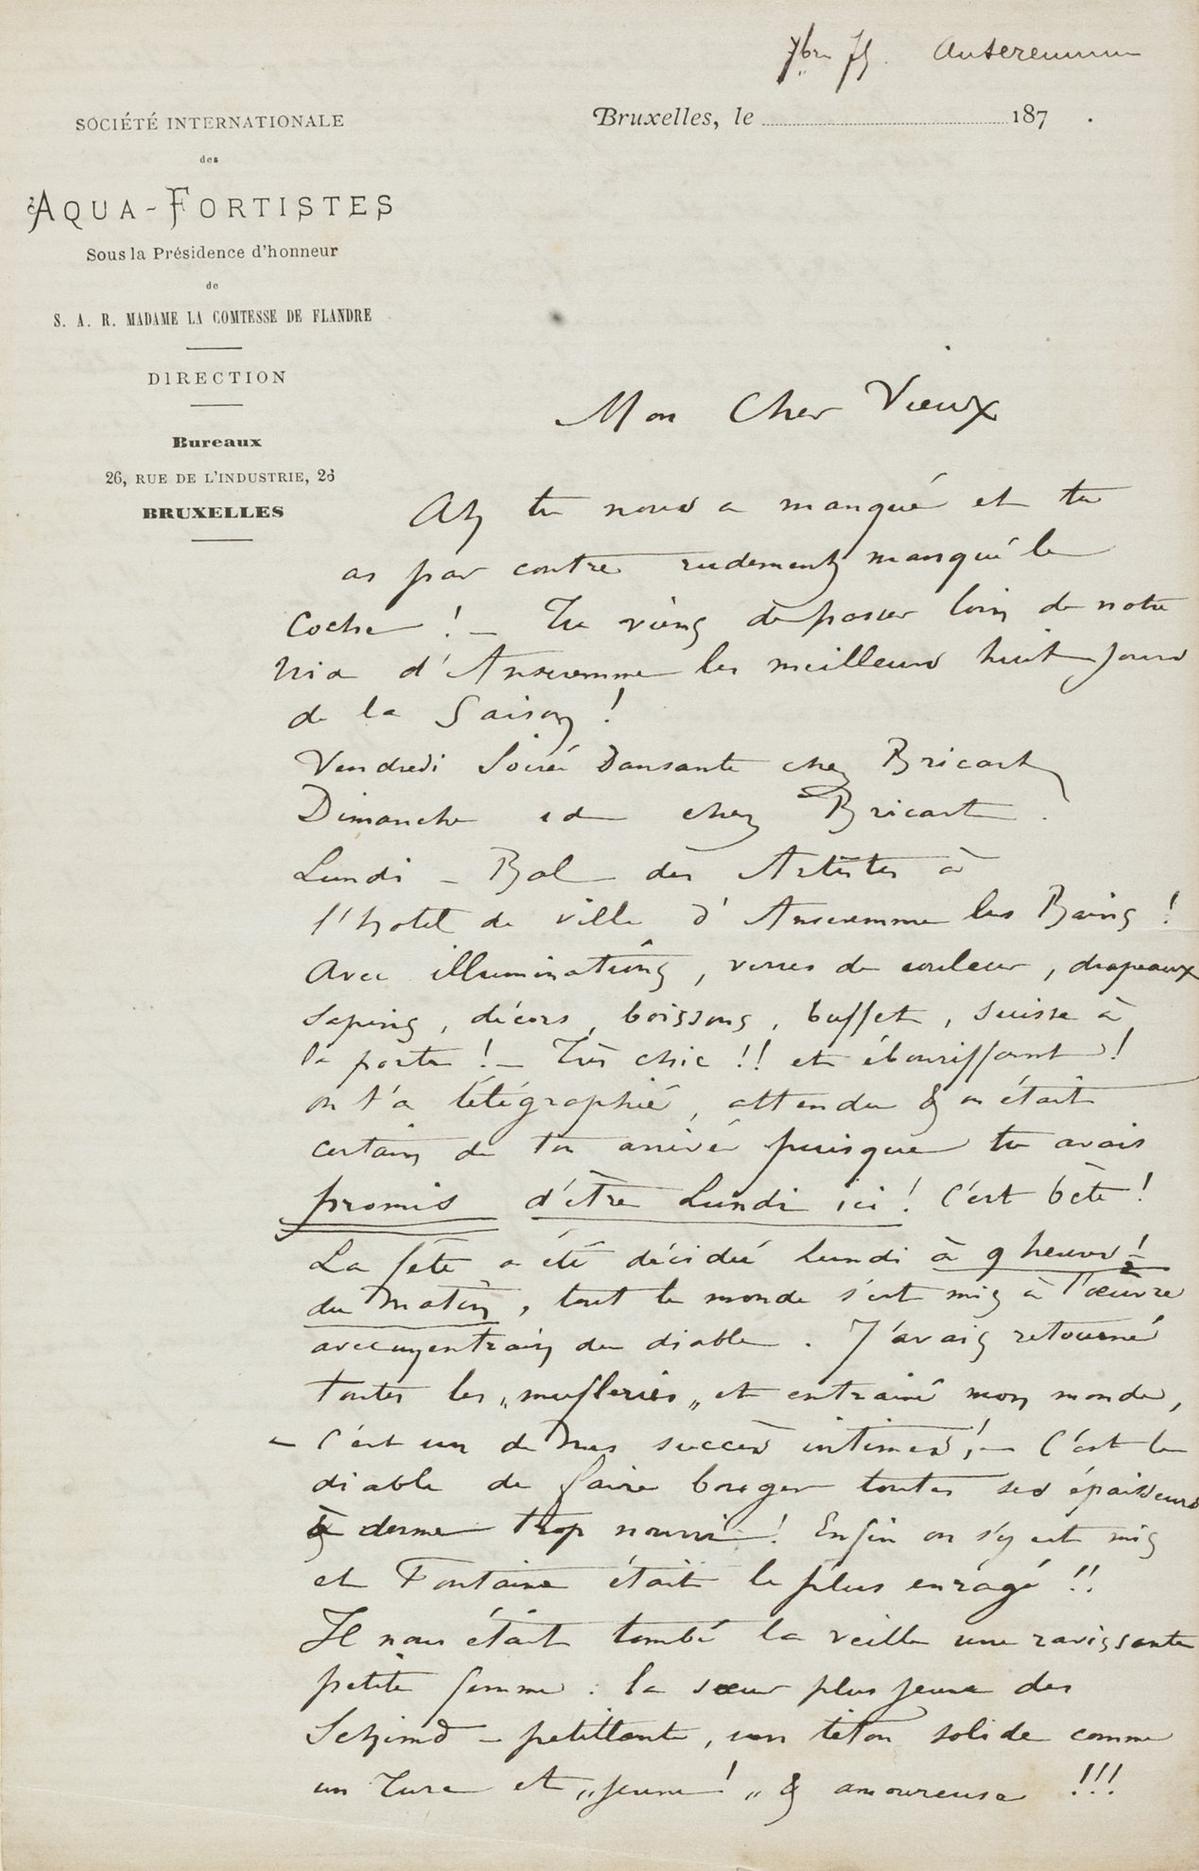 7bre 75. Anseremme
SOCIÉTÉ INTERNATIONALE
des
AQUA-FORTISTES
Sous la Présidence d'honneur
de
S. A. R. MADAME LA COMTESSE DE FLANDRE
DIRECTION
Bureaux
26, RUE DE L'INDUSTRIE, 26
BRUXELLES
Bruxelles, le 187 .
Mon Cher Vieux
Ah tu nous a manqué et tu
as par contre rudement manqué le
Coche ! – Tu viens de passer loin de notre
Nid d'Anseremme les meilleurs huit jours
de la Saison !
Vendredi Soirée Dansante chez Bricart
Dimanche id chez Bricart.
Lundi – Bal des Artistes à
l'hotel de ville d'Anseremme les Bains !
Avec illuminations, verres de couleur, drapeaux
Sapins, décors, boissons, buffet, suisse à
la porte ! – Très chic !! et ébouriffant !
on t'a télégraphié, attendu & on était
certain de ton arrivée puisque tu avais
promis d'être Lundi ici ! C'est bête !
La fête a été décidée lundi à 9 heures !
du Matin, tout le monde s'est mis à l'œuvre
avec un entrain du diable. J'avais retourné
toutes les „mufleries„ et entrainé mon monde,
– C'est un de mes succès intimes ! – C'est le
diable de faire bouger toutes ses épaisseurs
à derme trop nourri ! Enfin on s'y est mis
et Fontaine était le plus enragé !!
Il nous était tombé la veille une ravissante
petite femme : la sœur plus jeune des
– petillante, un téton solide comme
un Turc et „jeune ! „ & amoureuse !!!